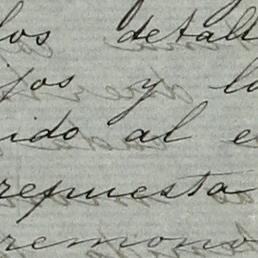 los detall
jos y la
ido al e
repuesta
remono